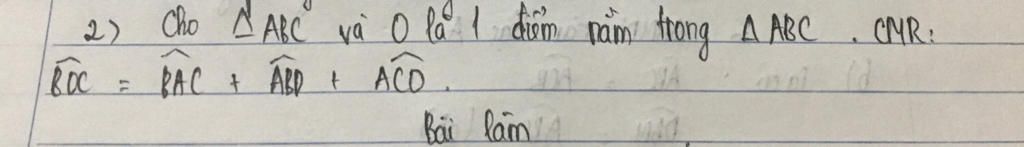 2) Cho ΔABC và O là 1 điểm nằm trong ΔABC. CMR:
\widehat{BOC} = \widehat{BAC} + \widehat{ABO} + \widehat{ACO}.
Bài làm